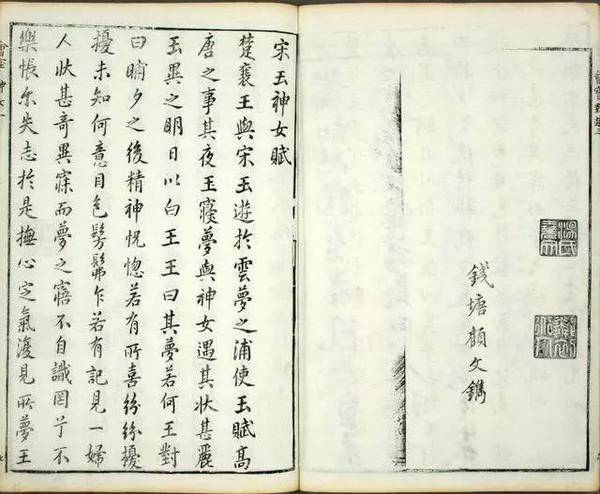 錢塘顧文鐫
宋玉神女賦
楚襄王與宋玉遊於雲夢之浦使玉賦高
唐之事其夜王寢夢與神女遇其狀甚麗
玉異之明日以白王王曰其夢若何王對
曰晡夕之後精神怳惚若有所喜紛紛擾
擾未知何意目色髣髴乍若有記見一婦
人狀甚奇異寐而夢之寤不自識罔兮不
樂悵尓失志於是撫心定氣復見所夢王